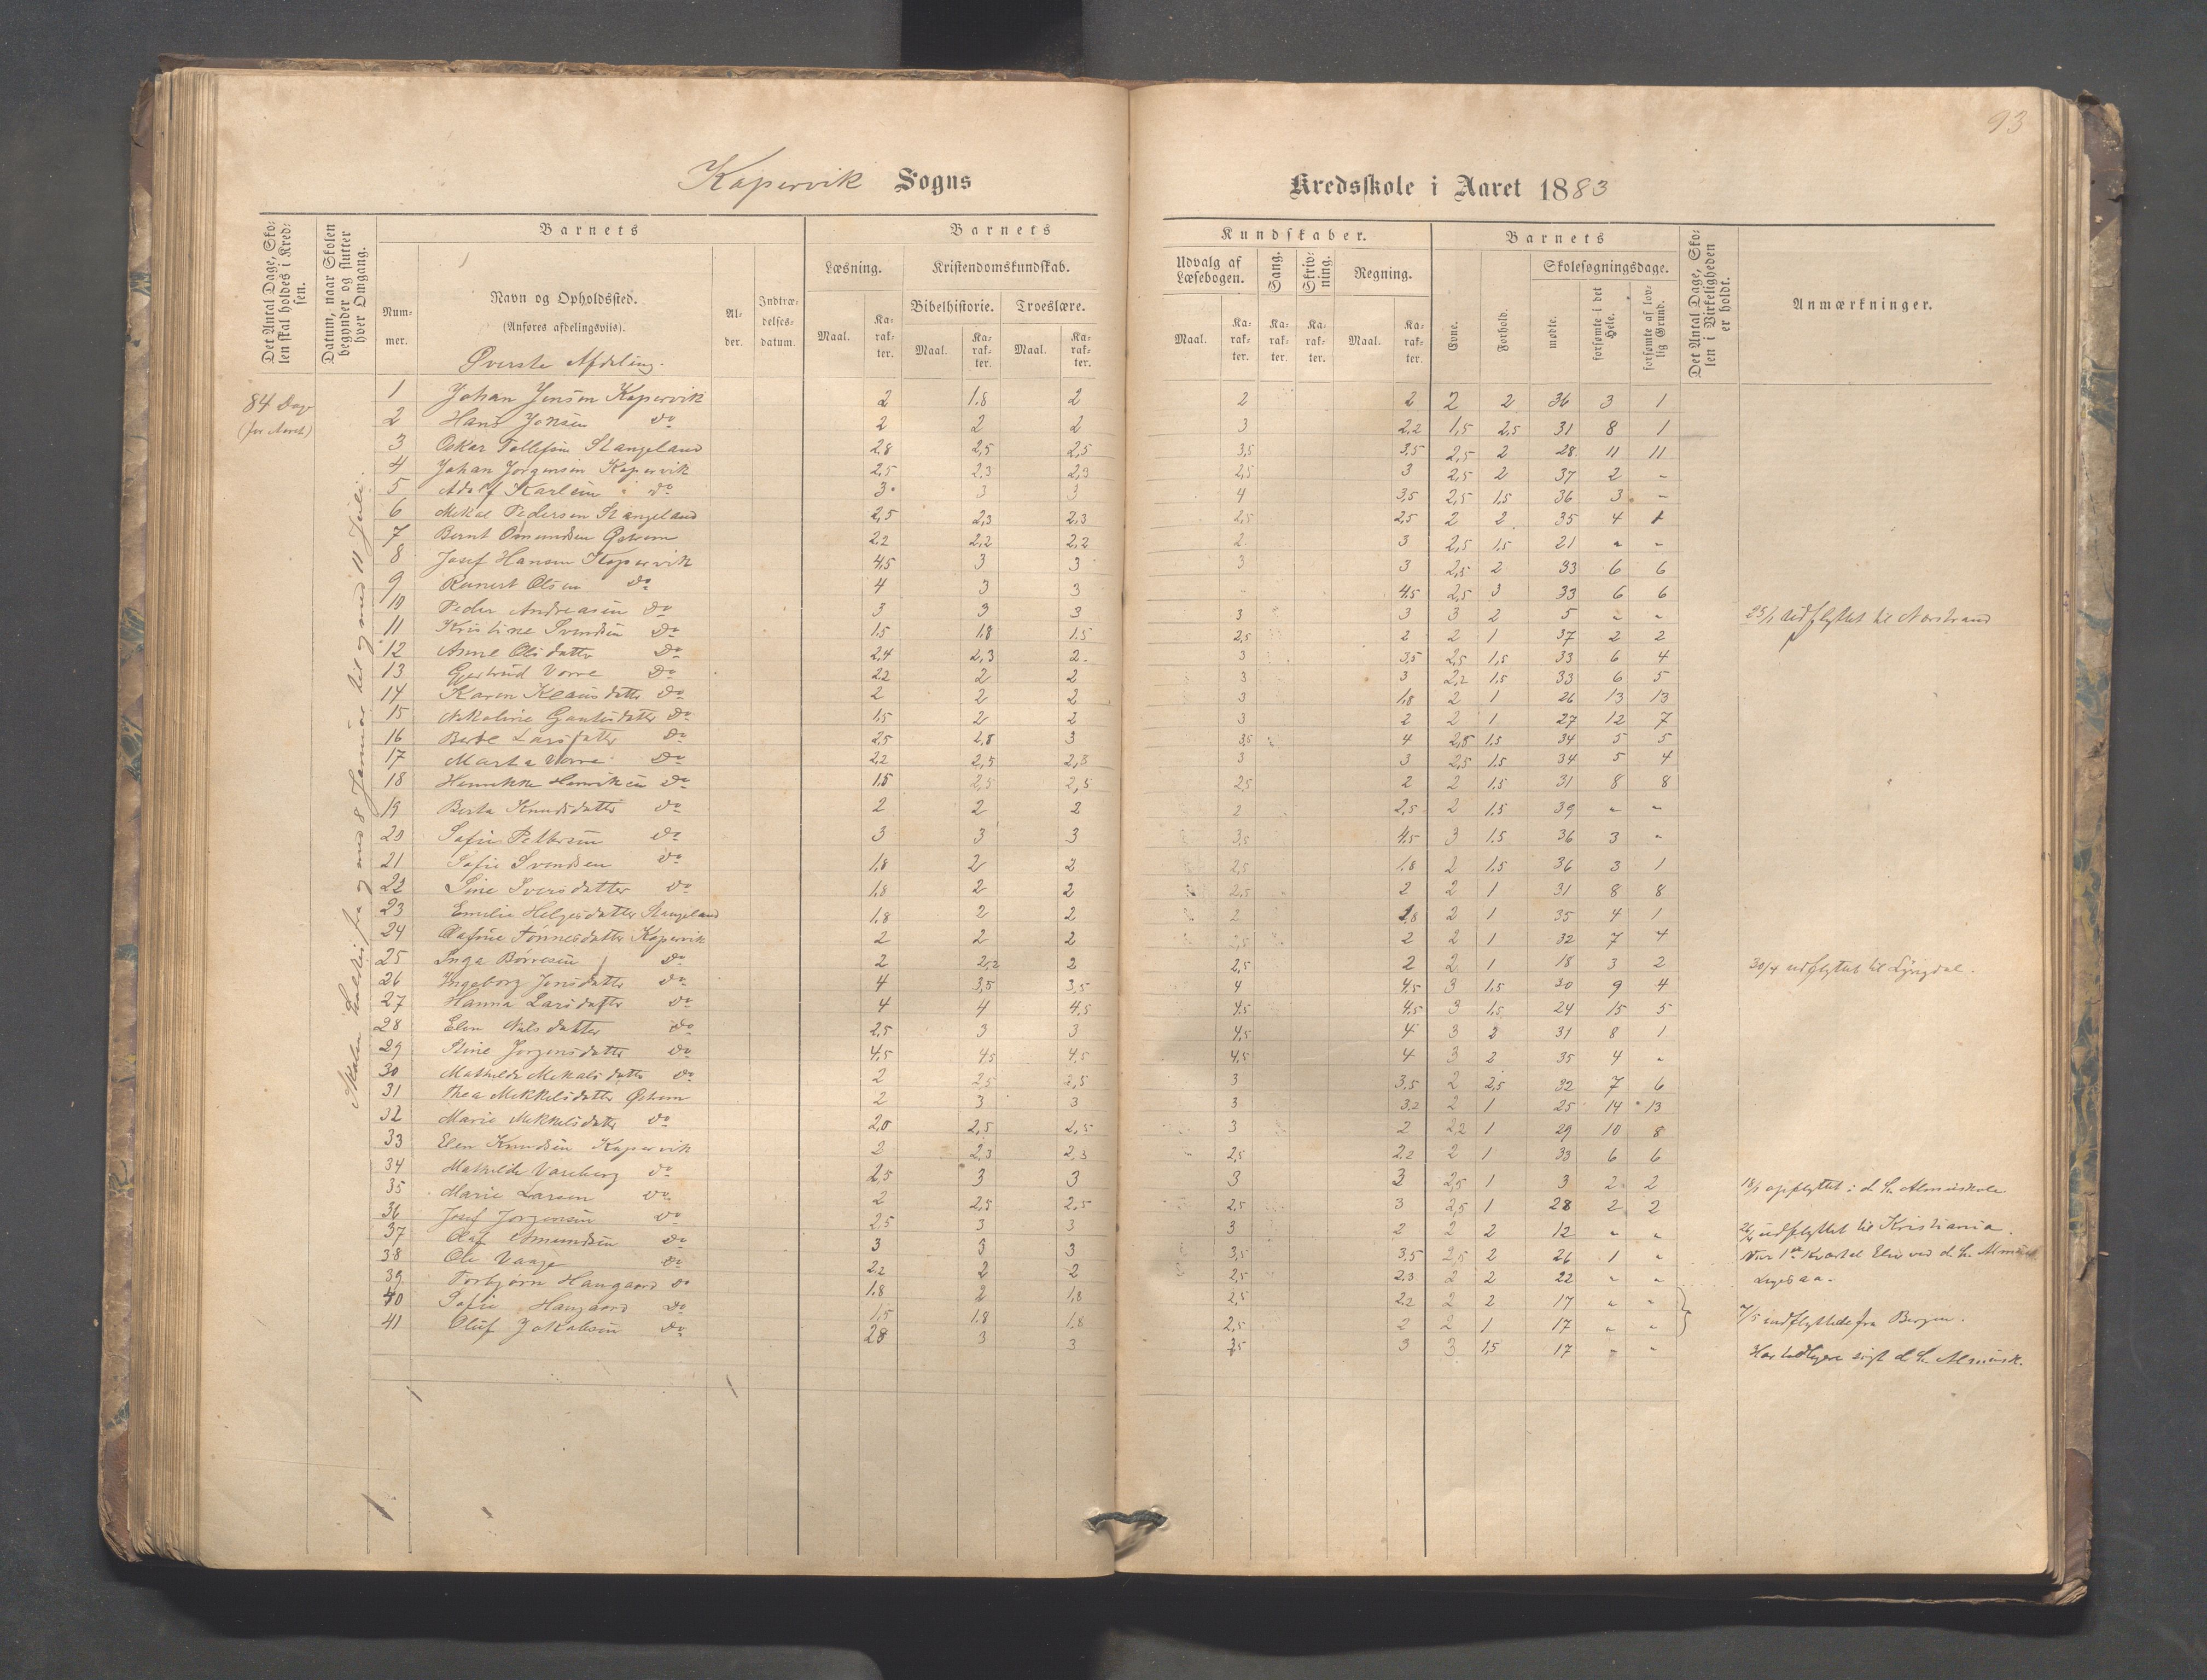 93
Kopervik Sogns Kredsskole i Aaret 1883
Det Antal Dage, Sko-
len skal holdes i Kred-
sen.
Datum, naar Skolen
begynder og slutter
hver Omgang.
Barnets
Num-
mer.
Navn og Opholdssted.
(Anføres afdelingsviis).
Al-
der.
Indtræ-
delses-
datum.
Barnets Kundskaber.
Læsning.
Kristendomskundskab.
Bibelhistorie. Troeslære.
Udvalg af
Læsebogen.
Sang.
Skriv-
ning.
Regning.
Maal.
Ka-
rak-
ter.
Barnets
Evne.
Forhold.
Skolesøgningsdage.
mødte.
forsømte i det
Hele.
forsømte af lov-
lig Grund.
Det Antal Dage, Sko-
len i Virkeligheden
er holdt.
Anmærkninger.
Øverste Afdeling.
84 Dage
(for Aaret)
Skolen holdtes fra og med 8 Januar til og med 11 Juli.
1 Johan Jensen Kopervik 2 1.8 2 2 2 2 2 36 3 1
2 Hans Jonsen do 2 2 2 3 2.2 1,5 2,5 31 8 1
3 Oskar Tollefsen Stangeland 2.8 2,5 2,5 3,5 3,5 2,5 2 28 11 11
4 Johan Jørgensen Kopervik 2,5 2.3 2,3 2,5 3 2,5 2 37 2 -
5 Adolf Karlsen do 3 3 3 4 3,5 2,5 1,5 36 3 -
6 Mikal Pedersen Stangeland 2,5 2,3 2.3 2,5 2,5 2 2 35 4 1
7 Bernt Omundsen Østrem 2.2 2,2 2,2 2 3 2,5 1,5 21 " "
8 Josef Hansen Kopervik 4,5 3 3 3 3 2,5 2 33 6 6
9 Olsen do 4 3 3 4.5 2,5 3 33 6 6
10 Peder Andreasen do 3 3 3 3 3 3 2 5 " " 25/1 udflyttet til Norstrand
11 Kristine Svendsen do 1.5 1.8 1.5 2,5 2 2 1 37 2 2
12 Anne Olsdatter do 2,4 2,3 2 3 3,5 2,5 1,5 33 6 4
13 Gjertrud Vorre do 2.2 2 2 3 3 2,2 1,5 33 6 5
14 Karen Klausdatter do 2 2 2 3 1,8 2 1 26 13 13
15 Nikoline Gautesdatter do 1,5 2 2 3 2 2 1 27 12 7
16 Berte Larsdatter do 2,5 2,8 3 3,5 4 2,5 1,5 34 5 5
17 Marta Vorre do 2.2 2,5 2,3 3 3 2,5 1.5 34 5 4
18 Henrikke Henriksen do 1.5 2,5 2,5 2,5 2 2 1,5 31 8 8
19 Berta Knudsdatter do 2 2 2 2 2,5 2 1,5 39 " "
20 Sofie Pettersen do 3 3 3 3,5 4,5 3 1.5 36 3 "
21 Sofie Svendsen do 1.8 2 2 2,5 1.8 2 1,5 36 3 1
22 Sine Sversdatter do 1.8 2 2 2,5 2 2 1 31 8 8
23 Emilie Helgesdatter Stangeland 1,8 2 2 2 1,8 2 1 35 4 1
24 Tønnesdatter Kopervik 2 2 2 2,5 2 2 1 32 7 4
25 Inga Børresen do 2 2,2 2 2,5 2 2 1 18 3 2 30/4 udflyttet til Lyngdal.
26 Ingeborg Jonsdatter do 4 3,5 3,5 4 4,5 3 1,5 30 9 4
27 Hanna Larsdatter do 4 4 4,5 4,5 4,5 3 1,5 24 15 5
28 Elen Nilsdatter do 2,5 3 3 4,5 4 3 2 31 8 1
29 Stine Jørgensdatter do 4,5 4,5 4,5 4,5 4 3 2 35 4 "
30 Mathilde Mikalsdatter do 2 2,5 2,5 3 3,5 2 2,5 32 7 6
31 Thea Mikkelsdatter Østrem 2 3 3 3 3.2 2 1 25 14 13
32 Marie Mikkelsdatter do 2,0 2,5 2,5 3 2 2,2 1 29 10 8
33 Elen Knudsen Kopervik 2 2,3 2,3 2,5 2.2 2 1 33 6 6
34 Mathilde Vareberg do 2,5 3 3 3 3 2,5 1 3 2 2 18/1 opflyttet i d. h. Almueskole
35 Marie Larsen do 2 2,5 2,5 2,5 3 2,5 1 28 2 2
36 Josef Jørgensen do 2,5 3 3 3 2 2 2 12 " " udflyttet til Kristiania
37 Olaf Omundsen do 3 3 3 3,5 3,5 2,5 2 26 1 " Var 1ste Kvartal Elev ved d. h. Almuesk.
38 Ole Vaage do 2.2 2 2 2,5 2.3 2 2 22 " " Ligesaa.
39 Torbjørn Haugaard do 1.8 2 1,8 2,5 2.2 2 2 17 " "
40 Sofie Haugaard do 1,5 1.8 1.8 2,5 2 2 1 17 " " 7/5 indflyttede fra Bergen.
41 Oluf Jakobsen do 2.8 3 3 3,5 3 3 1,5 17 " " Har tidligere søgt d. h. Almuesk.